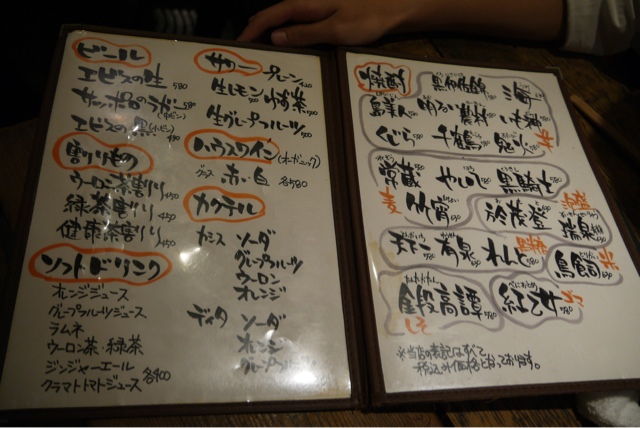 ビール
エビスの生 580
サッポロラガー 580
エビスの黒(小ビン)
割りもの
ウーロン茶割り 450
緑茶割り 450
健康茶割り 450
ソフトドリンク
オレンジジュース
グレープフルーツジュース
ラムネ
ウーロン茶・緑茶
ジンジャーエール
クラマトトマトジュース 各400
サワー プレーン
生レモン ゆず茶
生グレープフルーツ 500
ハウスワイン(オーガニック)
グラス 赤・白 各580
カクテル
カシス ソーダ
グレープフルーツ
ウーロン
オレンジ
ディタ ソーダ
オレンジ
グレープフルーツ
焼酎
黒伊佐錦 海
島美人 明るい農村
くじら 千鶴 鬼火 芋
常蔵 やいじ 黒騎士
麦 吟宵
冷茂登
瑞泉
黒糖
れんと
鳥飼 米
鍛高譚
しそ
紅乙女 ゴマ
べにおとめ
※当店の表記はすべて
税込み価格となっております。